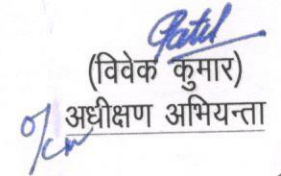 Patel
(विवेक कुमार)
अधीक्षण अभियन्ता